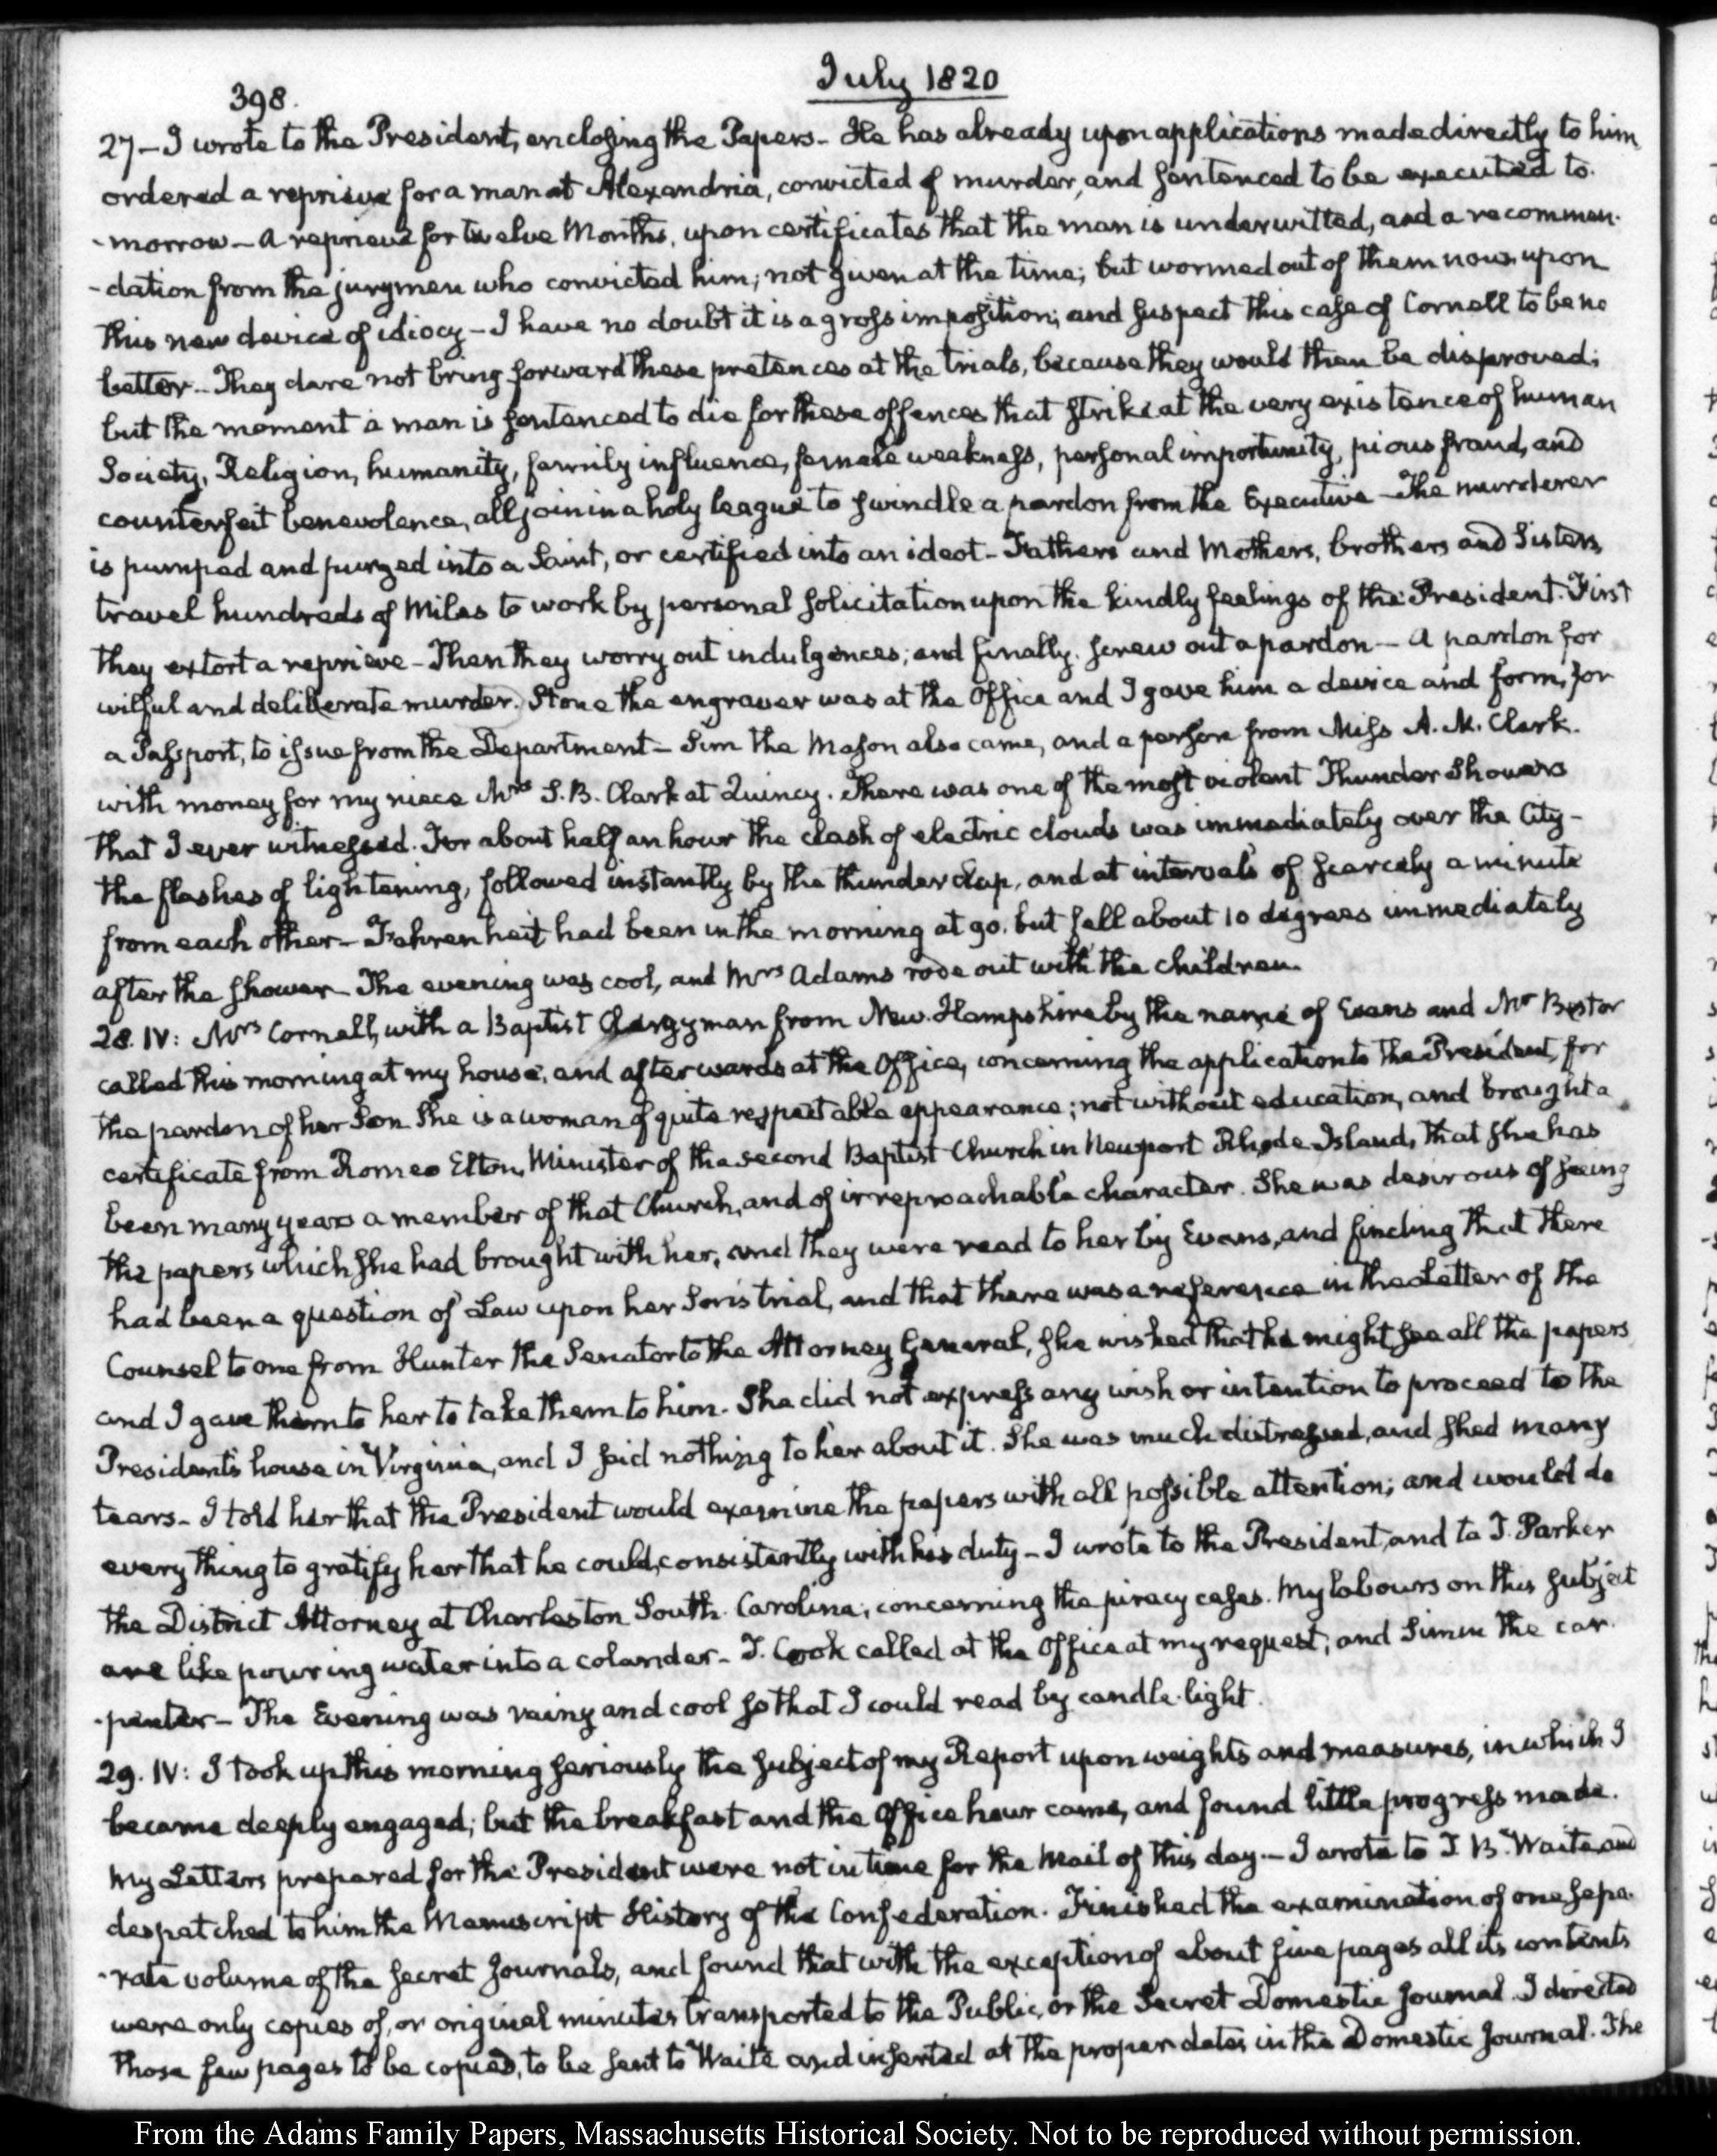 398.
July 1820
27 – I wrote to the President, enclosing the Papers – He has already upon applications made directly to him,
ordered a reprieve for a man at Alexandria, convicted of murder, and sentenced to be executed to-
-morrow – A reprieve for twelve Months, upon certificates that the man is underwitted, and a recommen-
-dation from the jurymen who convicted him; not given at the time; but wormed out of them now upon
this new device of idiocy – I have no doubt it is a gross imposition; and suspect this case of Cornell to be no
better – They dare not bring forward these pretences at the trials, because they would then be disproved;
but the moment a man is sentenced to die for these offences that strike at the very existence of human
Society, Religion, humanity, family influence, female weakness, personal importunity, pious fraud, and
counterfeit benevolence, all join in a holy league to swindle a pardon from the Executive – The murderer
is pumped and purged into a Saint, or certified into an ideot – Fathers and Mothers, brothers and Sisters,
travel hundreds of Miles to work by personal solicitation upon the kindly feelings of the President. First
they extort a reprieve – Then they worry out indulgences; and finally screw out a pardon – A pardon for
wilful and deliberate murder. Stone the engraver was at the Office and I gave him a device and form, for
a Passport, to issue from the Department – Sim the Mason also came, and a person from Miss A. M. Clark.
with money for my niece Mrs S. B. Clark at Quincy. There was one of the most violent Thunder Showers
that I ever witnessed. For about half an hour the clash of electric clouds was immediately over the City –
the flashes of lightening, followed instantly by the thunder clap, and at intervals of scarcely a minute
from each other – Fahrenheit had been in the morning at 90. but fell about 10 degrees immediately
after the shower – The evening was cool, and Mrs Adams rode out with the children.
28. IV: Mrs Cornell, with a Baptist Clergyman from New-Hampshire by the name of Evans and Mr Bestor
called this morning at my house, and afterwards at the Office, concerning the application to the President, for
the pardon of her Son She is a woman of quite respectable appearance; not without education, and brought a
certificate from Romeo Elton, Minister of the second Baptist Church in Newport Rhode Island, that she has
been many years a member of that Church, and of irreproachable character. She was desirous of seeing
the papers which she had brought with her, and they were read to her by Evans, and finding that there
had been a question of Law upon her Son's trial, and that there was a reference in the Letter of the
Counsel to one from Hunter the Senator to the Attorney General, she wished that he might see all the papers
and I gave them to her to take them to him. She did not express any wish or intention to proceed to the
President's house in Virginia, and I said nothing to her about it. She was much distressed, and shed many
tears – I told her that the President would examine the papers with all possible attention; and would do
every thing to gratify her that he could, consistently with his duty – I wrote to the President, and to T. Parker
the District Attorney at Charleston South-Carolina; concerning the piracy cases. My labours on this subject
are like pouring water into a colander – I. Cook called at the Office at my request; and Simm the car-
-penter – The Evening was rainy and cool so that I could read by candle-light.
29. IV: I took up this morning seriously the subject of my Report upon weights and measures, in which I
became deeply engaged; but the breakfast and the Office hour came, and found little progress made.
My Letters prepared for the President were not in time for the Mail of this day. – I wrote to T B. Waite and
despatched to him the Manuscript History of the Confederation. Finished the examination of one sepa-
-rate volume of the secret Journals, and found that with the exception of about five pages all its contents
were only copies of, or original minutes transported to the Public, or the Secret Domestic Journal. I directed
those few pages to be copied, to be sent to Waite and inserted at the proper dates in the Domestic Journal. The
From the Adams Family Papers, Massachusetts Historical Society. Not to be reproduced without permission.